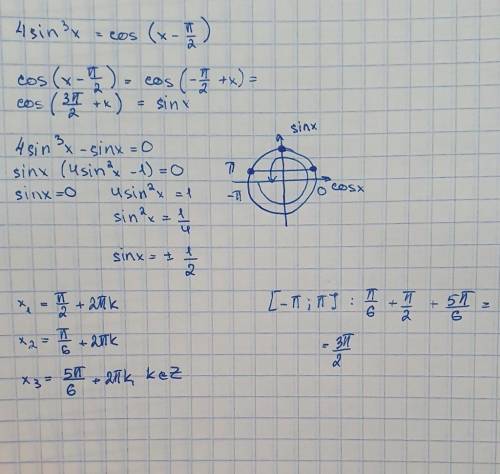 4sin³x = cos (x - π/2)
cos(x - π/2) = cos(-π/2 + x) =
cos(3π/2 + x) = sinx
4sin³x - sinx = 0
sinx (4sin²x - 1) = 0
sinx = 0 4sin²x = 1
sin²x = 1/4
sinx = ± 1/2
sinx
π
-π
0 cosx
x₁ = π/2 + 2πk
x₂ = π/6 + 2πk
x₃ = 5π/6 + 2πk, k∈Z
[-π; π] : π/6 + π/2 + 5π/6 =
= 3π/2